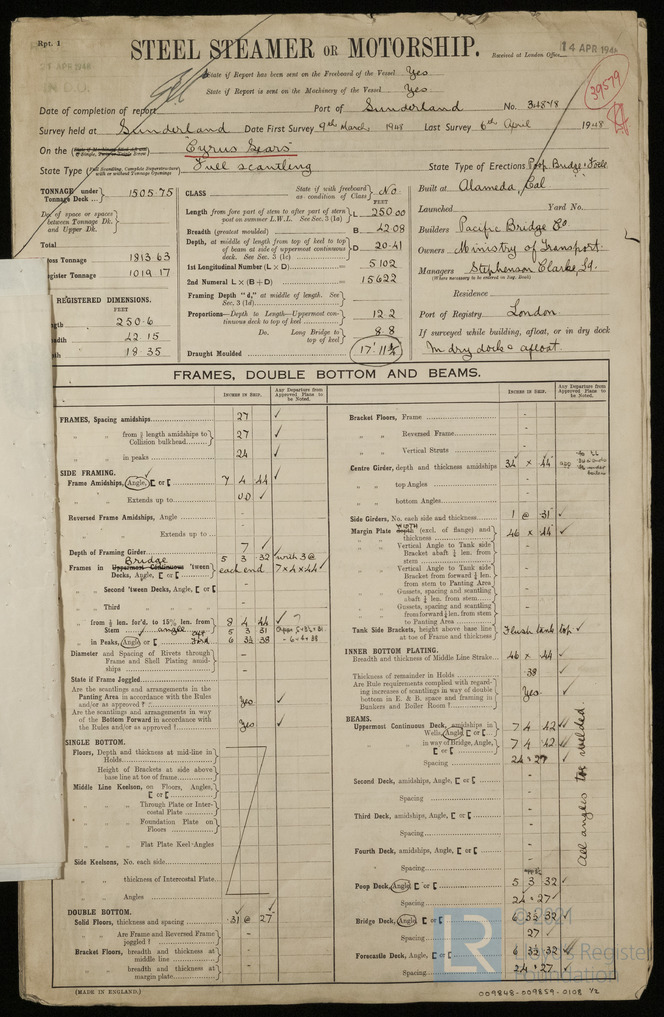 Rpt. 1
STEEL STEAMER OR MOTORSHIP.
Received at London Office
14 APR 1948
State if Report has been sent on the Freeboard of the Vessel Yes
State if Report is sent on the Machinery of the Vessel Yes
39579
Date of completion of report
Port of Sunderland No. 34878
Survey held at Sunderland Date First Survey 9th March 1948 Last Survey 6th April 1948
On the "Cyrus Sears"
State Type Full scantling
State Type of Erections Poop Bridge & Fo'cle
TONNAGE under Tonnage Deck ... 1505.75
Do. of space or spaces between Tonnage Dk. and Upper Dk.
Total
Gross Tonnage 1813.63
Register Tonnage 1019.17
REGISTERED DIMENSIONS.
FEET
250.6
42.15
18.35
CLASS State if with freeboard as condition of Class No
FEET
Length from fore part of stem to after part of stern post on summer L.W.L. See Sec. 3 (1a) L 250.00
Breadth (greatest moulded) B 42.08
Depth, at middle of length from top of keel to top of beam at side of uppermost continuous deck. See Sec. 3 (1c) D 20.41
1st Longitudinal Number (L × D) 5102
2nd Numeral L × (B + D) 15622
Framing Depth "d," at middle of length. See Sec. 3 (1d)
Proportions—Depth to Length—Uppermost continuous deck to top of keel 12.2
Do. Long Bridge to top of keel 8.8
Draught Moulded 17' 11¾
Built at Alameda, Cal
Launched Yard No.
Builders Pacific Bridge Co
Owners Ministry of Transport.
Managers Stephenson Clarke, Ld.
(Where necessary to be entered in Reg. Book)
Residence
Port of Registry London
If surveyed while building, afloat, or in dry dock
In dry dock & afloat
FRAMES, DOUBLE BOTTOM AND BEAMS.
INCHES IN SHIP.
Any Departure from Approved Plans to be Noted.
FRAMES, Spacing amidships 27 ✓
" " from ⅕ length amidships to Collision bulkhead 27 ✓
" " in peaks 24 ✓
SIDE FRAMING.
Frame Amidships, Angle, [ or [ 7 4 44 ✓
" " Extends up to U.D ✓
Reversed Frame Amidships, Angle -
" " Extends up to -
Depth of Framing Girder 7 ✓
Frames in Uppermost Continuous 'tween Decks, Angle, [ or [ 5 3 32 ✓ with 3 @
Bridge
each end 7×4×44 ✓
" Second 'tween Decks, Angle, [ or [ -
" Third " " " " -
" from ⅕ len. for'd. to 15% len. from Stem angle 8 4 44 ✓
" in Peaks, Angle or [ aft 5 3 31
Ford 6 3½ 38
Diameter and Spacing of Rivets through Frame and Shell Plating amidships -
State if Frame Joggled -
Are the scantlings and arrangements in the Panting Area in accordance with the Rules and/or as approved? Yes ✓
Are the scantlings and arrangements in way of the Bottom Forward in accordance with the Rules and/or as approved? Yes ✓
SINGLE BOTTOM.
Floors, Depth and thickness at mid-line in Holds
Height of Brackets at side above base line at toe of frame
Middle Line Keelson, on Floors, Angles, [ or [
" " Through Plate or Intercostal Plate
" " Foundation Plate on Floors
" " Flat Plate Keel-Angles
Side Keelsons, No. each side
" " thickness of Intercostal Plate
" " Angles
DOUBLE BOTTOM.
Solid Floors, thickness and spacing .31 @ 27 ✓
" Are Frame and Reversed Frame joggled? -
Bracket Floors, breadth and thickness at middle line -
" " breadth and thickness at margin plate -
Bracket Floors, Frame -
" " Reversed Frame -
" " Vertical Struts -
Centre Girder, depth and thickness amidships 34 × .44 app
" " top Angles -
" " bottom Angles -
Side Girders, No. each side and thickness 1 @ .31 ✓
Margin Plate depth (excl. of flange) and thickness 46 × .44 ✓
WIDTH
" " Vertical Angle to Tank side Bracket abaft ¼ len. from stem -
" " Vertical Angle to Tank side Bracket from forward ¼ len. from stem to Panting Area -
" " Gussets, spacing and scantling abaft ¼ len. from stem -
" " Gussets, spacing and scantling from forward ¼ len. from stem to Panting Area -
Tank Side Brackets, height above base line at toe of Frame and thickness Flush tank top ✓
INNER BOTTOM PLATING.
Breadth and thickness of Middle Line Strake 46 × .44 ✓
Thickness of remainder in Holds .38 ✓
Are Rule requirements complied with regarding increases of scantlings in way of double bottom in E. & B. space and framing in Bunkers and Boiler Room? Yes ✓
BEAMS.
Uppermost Continuous Deck, amidships in Wells, Angle, [ or [ 7 4 42 ✓
" " in way of Bridge, Angle, [ or [ 7 4 42 ✓
" " Spacing 24 & 27 ✓
Second Deck, amidships, Angle, [ or [ -
" " Spacing -
Third Deck, amidships, Angle, [ or [ -
" " Spacing -
Fourth Deck, amidships, Angle, [ or [ -
" " Spacing -
Poop Deck, Angle, [ or [ 5 3 32 ✓
" " Spacing 24 & 27 ✓
Bridge Deck, Angle, [ or [ 6 3½ 32 ✓
" " Spacing 27 ✓
Forecastle Deck, Angle, [ or [ 6 3½ 32 ✓
" " Spacing 24 & 27 ✓
All angles toe welded
(MADE IN ENGLAND.)
LR
© 2021
Lloyd's Register
Foundation
009848-009859-0108 1/2